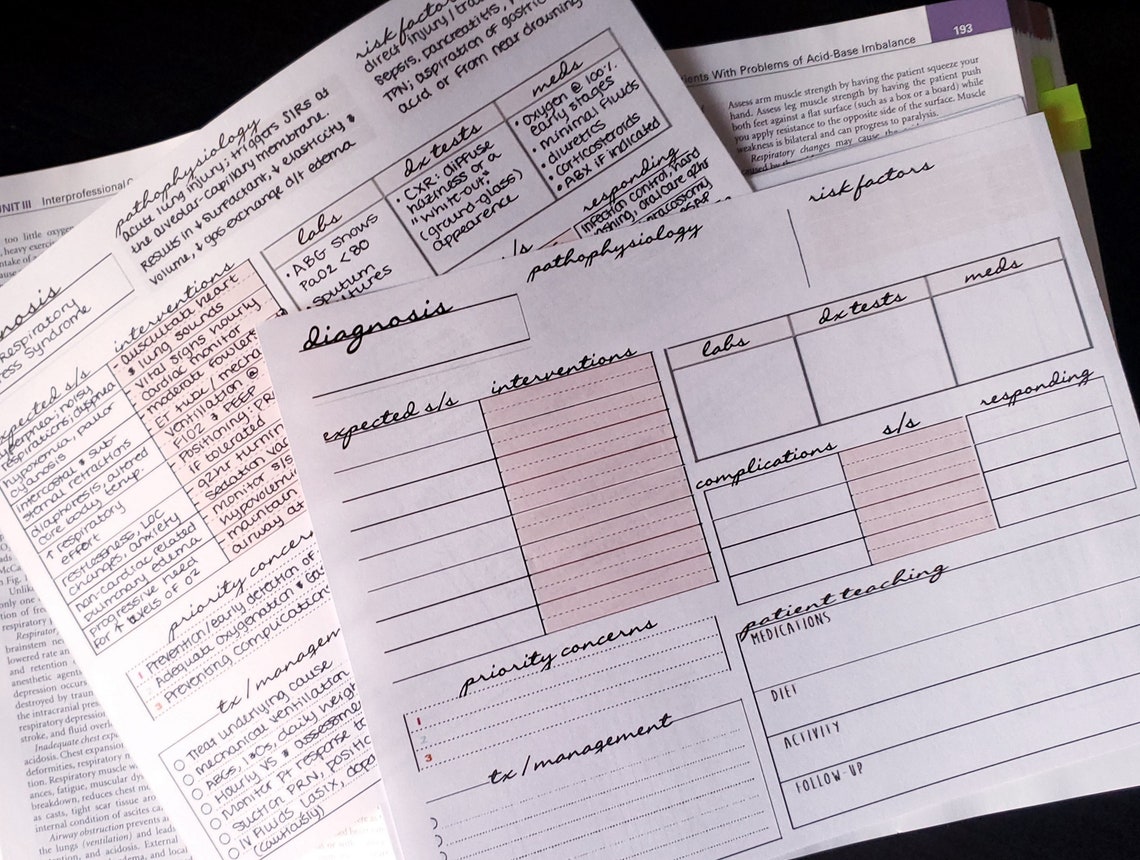 193
tients With Problems of Acid-Base Imbalance
Assess arm muscle strength by having the patient squeeze your
hand. Assess leg muscle strength by having the patient push
both feet against a flat surface (such as a box or a board) while
you apply resistance to the opposite side of the surface. Muscle
weakness is bilateral and can progress to paralysis.
Respiratory changes may cause the
UNIT III Interprofessional
too little oxygen
heavy exercise
risk factors
direct injury / 
sepsis, pancreatitis,
TPN; aspiration of gastric
acid or from near drowning
pathophysiology
acute lung injury; triggers SIRS at
the alveolar-capillary membrane.
Results in ↓ surfactant, ↓ elasticity &
volume, ↓ gas exchange d/t edema
labs
• ABG shows
PaO2 < 80
• sputum
cultures
dx tests
• CXR: diffuse
haziness or a
"white-out"
(ground-glass)
appearence
meds
• oxygen @ 100%
early stages
• minimal fluids
• diuretics
• corticosteroids
• ABX if indicated
s/s
responding
infection control, hand
washing, oral care q2hr
tracostomy
nosis
Respiratory
ess Syndrome
expected s/s
hyperpnea; noisy
respirations; dyspnea
hypoxemia, pallor
cyanosis
intercostal & sub-
sternal retractions
diaphoresis, altered
core body temp.
↑ respiratory
effort
restlessness, LOC
changes, anxiety
non-cardiac related
pulmonary edema
progressive need
for ↑ levels of O2
interventions
- auscultate heart
& lung sounds
- vital signs hourly
- cardiac monitor
- moderate fowlers
- ET tube / mecha
ventilation @
FiO2 & PEEP
- Positioning; PR
if tolerated
- q2hr turnin
- sedation va
- monitor s/s
hypovolemi
- maintain
airway at
priority concer
1 Prevention/early detection of
2 Adequate oxygenation & ga
3 Preventing complication
tx / managem
Treat underlying cause
mechanical ventilation
ABGs, I&Os, daily weigh
Hourly VS & assessme
Monitor Pt response to
suction PRN, positio
IV fluids, Lasix, dopa
(cautiously)
diagnosis
pathophysiology
risk factors
expected s/s
interventions
labs
dx tests
meds
complications
s/s
responding
priority concerns
1
2
3
tx / management
patient teaching
MEDICATIONS
DIET
ACTIVITY
FOLLOW-UP
Unlike
only one
tion of fre
respiratory
Respirator
brainstem ne
lowered rate an
and retention
anesthetic agents
depression occur
destroyed by traum
the intracranial pres
respiratory depression
stroke, and fluid overl
Inadequate chest expa
acidosis. Chest expansion
deformities, respiratory m
tion. Respiratory muscle w
ances, fatigue, muscular dys
breakdown, reduces chest mo
as casts, tight scar tissue aro
internal condition of ascites ca
the lungs (ventilation) and lead
Airway obstruction prevents a
tion, and acidosis. External
edema, and local